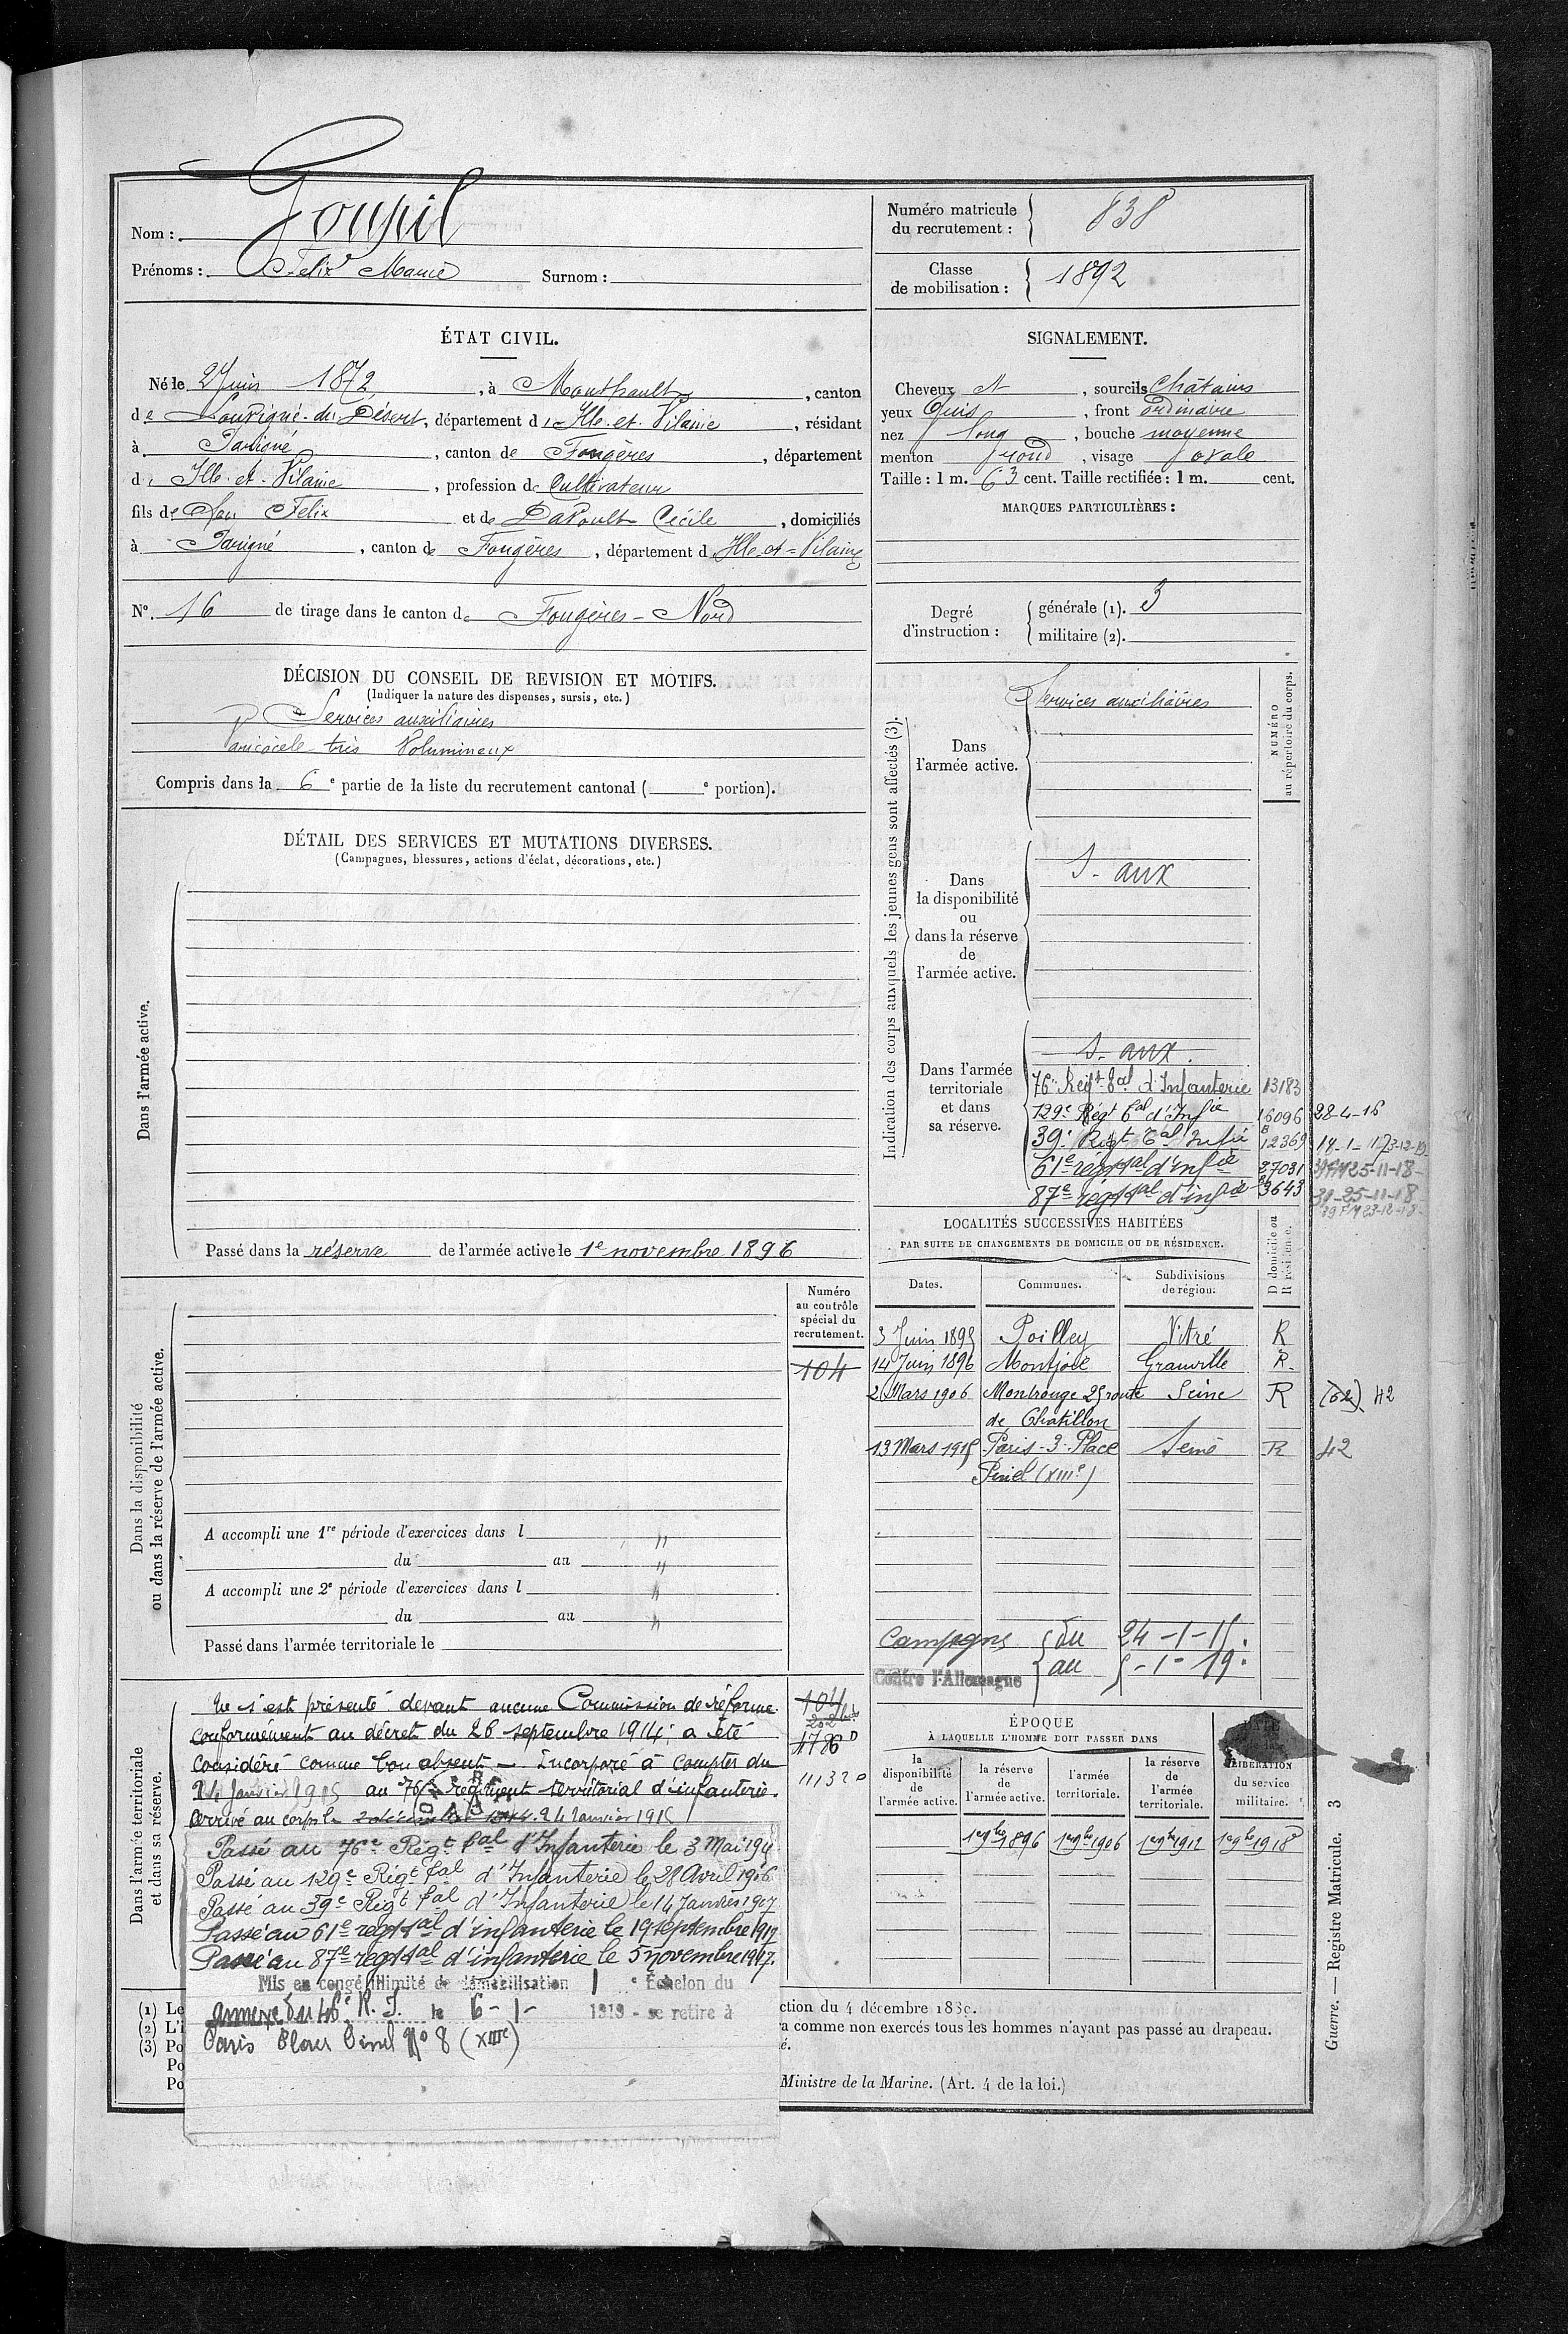 Nom : Goupil
Prénoms : Felix Marie Surnom :
Numéro matricule du recrutement : 838
Classe de mobilisation : 1892
ÉTAT CIVIL.
Né le 2 Juin 1872, à Monthault, canton
de Louvigné-du-Désert, département d'Ille-et-Vilaine, résidant
à Parigné, canton de Fougères, département
d' Ille-et-Vilaine, profession de Cultivateur
fils de feu Felix et de Davoult Cécile, domiciliés
à Parigné, canton de Fougères, département d Ille-et-Vilaine
N° 16 de tirage dans le canton de Fougères-Nord
SIGNALEMENT.
Cheveux et, sourcils Châtains
yeux Gris, front ordinaire
nez long, bouche moyenne
menton rond, visage ovale
Taille : 1 m. 63 cent. Taille rectifiée : 1 m. cent.
MARQUES PARTICULIÈRES :
Degré d'instruction :
générale (1). 3
militaire (2).
DÉCISION DU CONSEIL DE REVISION ET MOTIFS.
(Indiquer la nature des dispenses, sursis, etc.)
Services auxiliaires
Varicocèle très Volumineux
Compris dans la 6e partie de la liste du recrutement cantonal ( e portion).
DÉTAIL DES SERVICES ET MUTATIONS DIVERSES.
(Campagnes, blessures, actions d'éclat, décorations, etc.)
Dans l'armée active.
Passé dans la réserve de l'armée active le 1e novembre 1896
Indication des corps auxquels les jeunes gens sont affectés (3).
NUMÉRO au répertoire du corps.
Dans l'armée active.
Services auxiliaires
Dans la disponibilité ou dans la réserve de l'armée active.
S. aux
Dans l'armée territoriale et dans sa réserve.
S. aux.
76e Regt tal d'Infanterie 13183
129e Régt tal d'Infie 16096 28-4-16
39e Régt Tal Infie 12369 14-1-17
61e régt tal d'infie 27031 25-11-18
87e régt tal d'infie 3643 25-11-18
23-12-18
LOCALITÉS SUCCESSIVES HABITÉES
PAR SUITE DE CHANGEMENTS DE DOMICILE OU DE RÉSIDENCE.
Dates. Communes. Subdivisions de région. D domicile ou R résidence.
3 Juin 1895 Poilley Vitré R
14 Juin 1896 Montjoie Granville R.
2 Mars 1906 Montrouge 25 route de Chatillon Seine R (62) 42
13 Mars 1915 Paris-3-Place Pinel (XIIIe) Seine R 42
Campagne Contre l'Allemagne
du 24-1-15.
au 5-1-19.
Dans la disponibilité ou dans la réserve de l'armée active.
Numéro au contrôle spécial du recrutement.
104
A accompli une 1re période d'exercices dans l "
du au "
A accompli une 2e période d'exercices dans l "
du au "
Passé dans l'armée territoriale le
Dans l'armée territoriale et dans sa réserve.
Ne s'est présenté devant aucune Commission de réforme
conformément au décret du 26 septembre 1914; a été
considéré comme bon absent - Incorporé à compter du
24 Janvier 1915 au 76e régiment territorial d'infanterie.
Arrivé au corps le 24 Janvier 1915
104
202 bis
4786 D
11132 D
Passé au 76e Régt tal d'Infanterie le 3 Mai 1915
Passé au 129e Régt tal d'Infanterie le 28 Avril 1916
Passé au 39e Régt tal d'Infanterie le 14 Janvier 1917
Passé au 61e régt tal d'infanterie le 19 septembre 1917
Passé au 87e régt tal d'infanterie le 5 novembre 1917.
Mis en congé illimité de démobilisation 1e Echelon du
annexe du 46e R.I. le 6-1-1919 - se retire à
Paris Place Pinel No 8 (XIIIe)
ÉPOQUE
À LAQUELLE L'HOMME DOIT PASSER DANS
la disponibilité de l'armée active.
la réserve de l'armée active.
l'armée territoriale.
la réserve de l'armée territoriale.
DATE LIBÉRATION du service militaire.
1er 9bre 1896 1er 9bre 1906 1er 9bre 1912 1er 9bre 1918
(1) Le
ction du 4 décembre 1889.
(2) L'I
a comme non exercés tous les hommes n'ayant pas passé au drapeau.
(3) Po
é.
Po
Po
Ministre de la Marine. (Art. 4 de la loi.)
Guerre. — Registre Matricule. 3